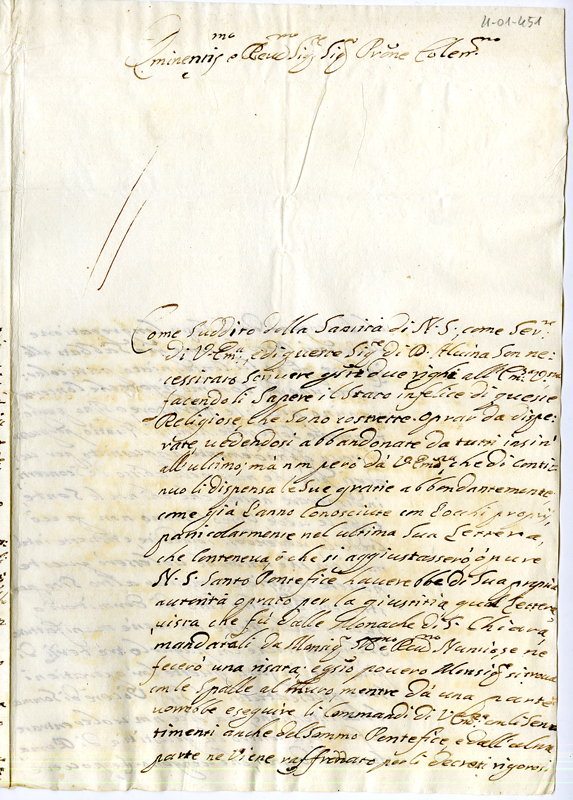 4-01-451
Eminentis.mo e Reue.mo Sig.re Sig.re Prõne Colen.mo
Come Suddito della Santità di N. S. come Ser.re
di V. Em.a, e di queste Sig.re di D. Aluina Son ne-
cessitato Scriuere queste due righe all' Em.a V.
facendoli Sapere il Stato infelice di queste
Religiose, che Sono costrette oprar da dispe-
rate, uedendosi abbandonate da tutti insin'
all' ultimo; mà non però da V. Em.a, che di conti-
nuo li dispensa le Sue gratie abbondantemente
come già l'anno Conosciute con l'occhi proprij,
particolarmente nel ultima Sua Lettera,
che Conteneua ò che si aggiustassero ò pure
N. S. Santo Pontefice hauerebbe di Sua propria
autorità oprato per la giustitia qual Lettera
uista che fù dalle Monache di S. Chiara,
mandatali da Monsig.r Nuntio se ne
fecero una risata; e questo pouero Monsig.r si troua
con le Spalle al muro mentre da una parte
uorrebe eseguire li Commandi di V. Em.a con li Sen-
timenti anche del Sommo Pontefice, e dall' altra
parte ne Viene raffreddato per li decreti rigorosi